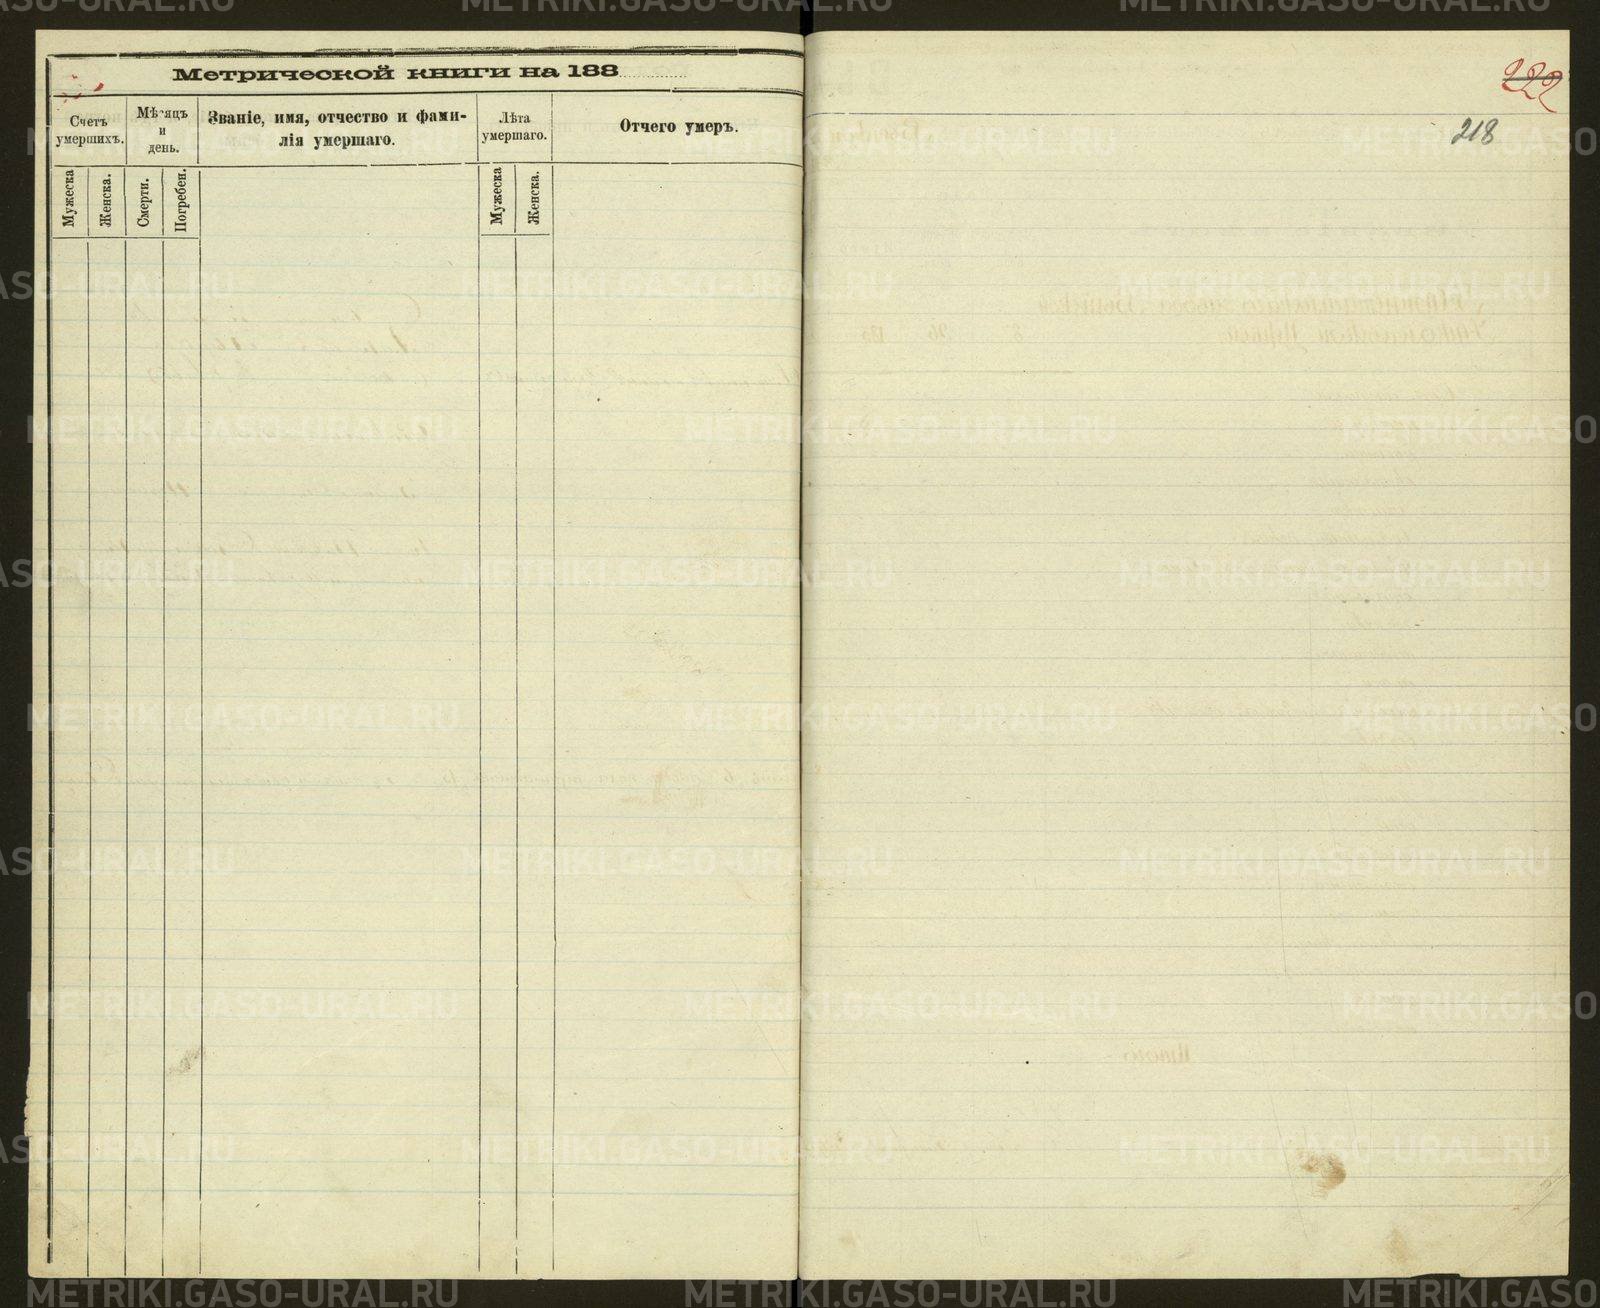 Метрической книги на 188
Счетъ умершихъ.
Мѣсяцъ и день.
Званіе, имя, отчество и фами-
лія умершаго.
Лѣта умершаго.
Отчего умеръ.
Мужеска
Женска.
Смерти.
Погребен.
Мужеска
Женска.
222
218
METRIKI.GASO-URAL.RU